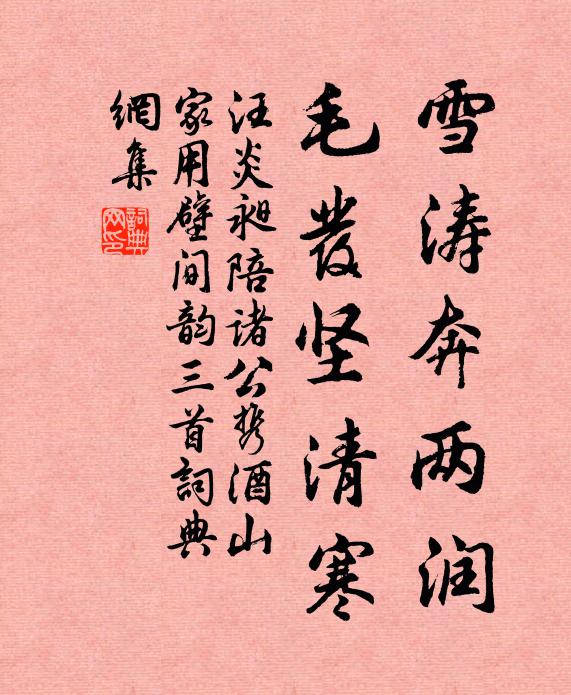 雪涛奔两润
毛发坚清寒
汪炎昶陪诸公携酒山
家用壁间韵三首詞典
網集
詞典
网印